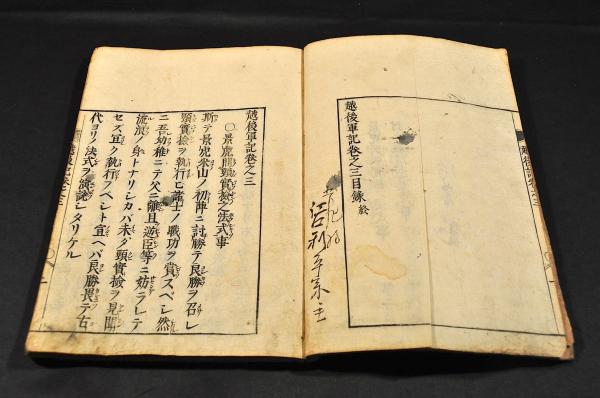 越後軍記卷之三目録終
越後軍記卷之三
〇景虎聞頸實檢之法式事
斯テ景虎米山ノ初陣ニ討勝テ良勝ヲ召レ
頸實檢ヲ執行ヒ諸士ノ戰功ヲ賞スベシ然
ニ吾幼稚ニテ父ニ離且逆臣等ニ妨ラレテ
流浪ノ身トナリシカバ未ダ頸實檢ヲ見聞
セズ宜ク執行フベシト宣ヘバ良勝畏テ古
代ヨリノ法式ヲ演説シタリケル